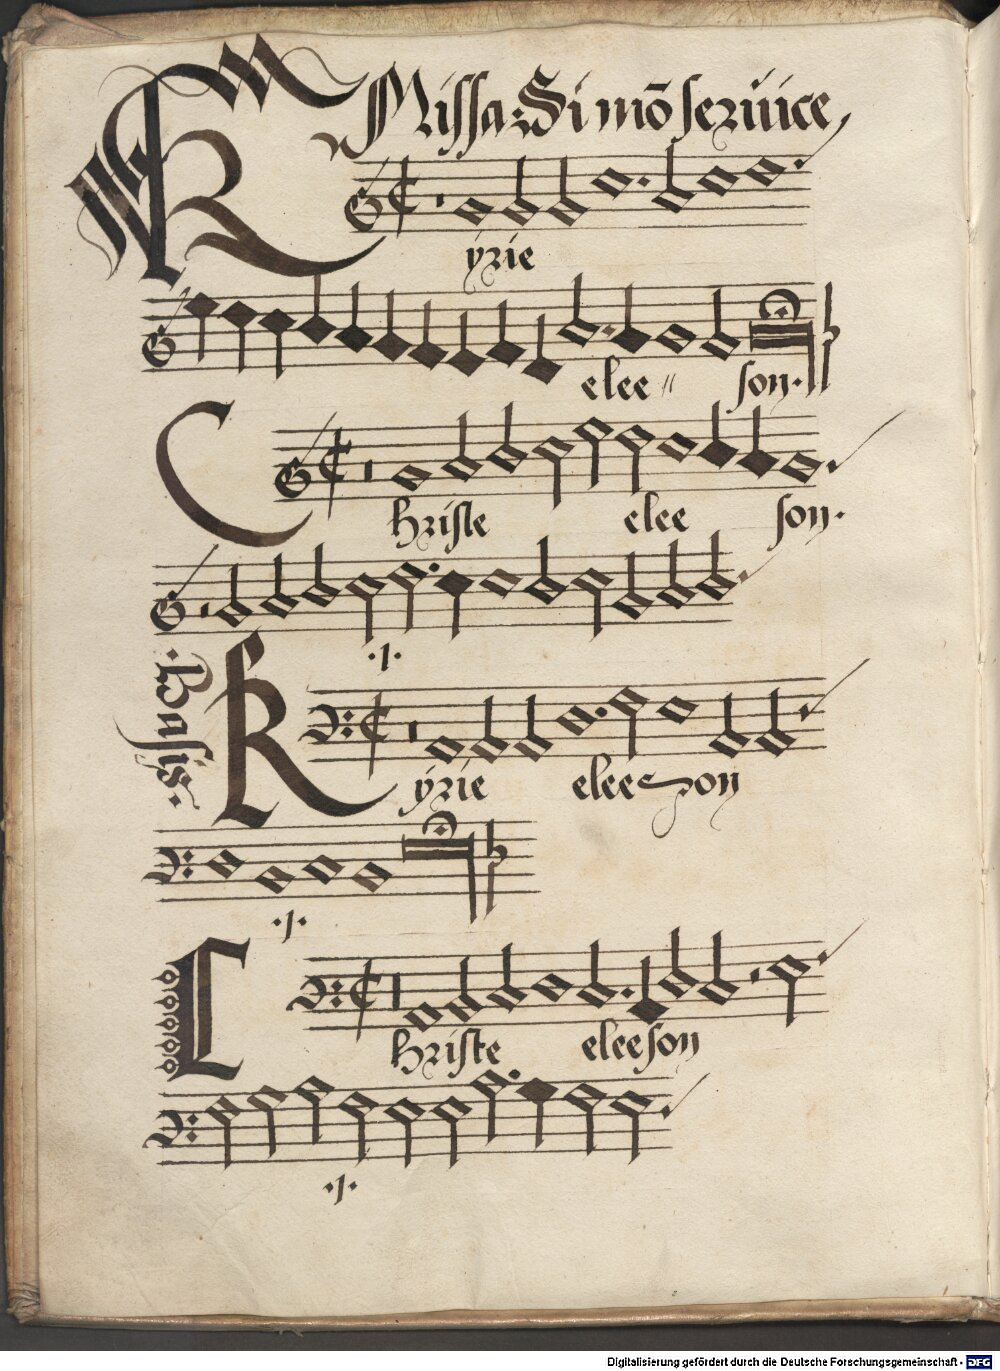 Missa: Si mō seruice
Kyrie
elee〃 son.
Christe elee son.
.1.
Basis.
Kyrie eleeson
.1.
Christe eleeson
.1.
Digitalisierung gefördert durch die Deutsche Forschungsgemeinschaft - DFG